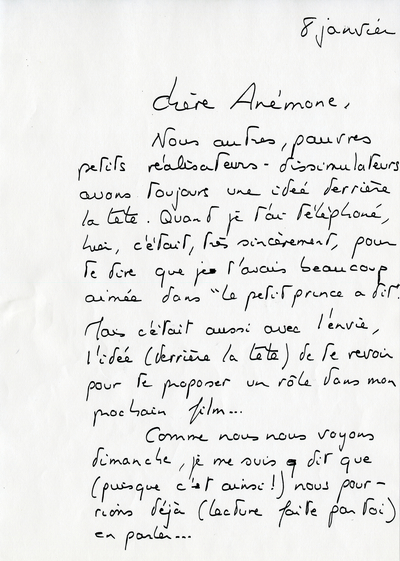 8 janvier
Chère Anémone,
Nous autres, pauvres
petits réalisateurs-dissimulateurs
avons toujours une ideé derrière
la tête. Quand je t'ai téléphoné,
hier, c'était, très sincèrement, pour
te dire que je t'avais beaucoup
aimée dans "Le petit prince a dit".
Mais c'était aussi avec l'envie,
l'idée (derrière la tête) de te revoir
pour te proposer un rôle dans mon
prochain film...
Comme nous nous voyons
dimanche, je me suis dit que
(puisque c'est ainsi!) nous pour-
rions déjà (lecture faite par toi)
en parler...